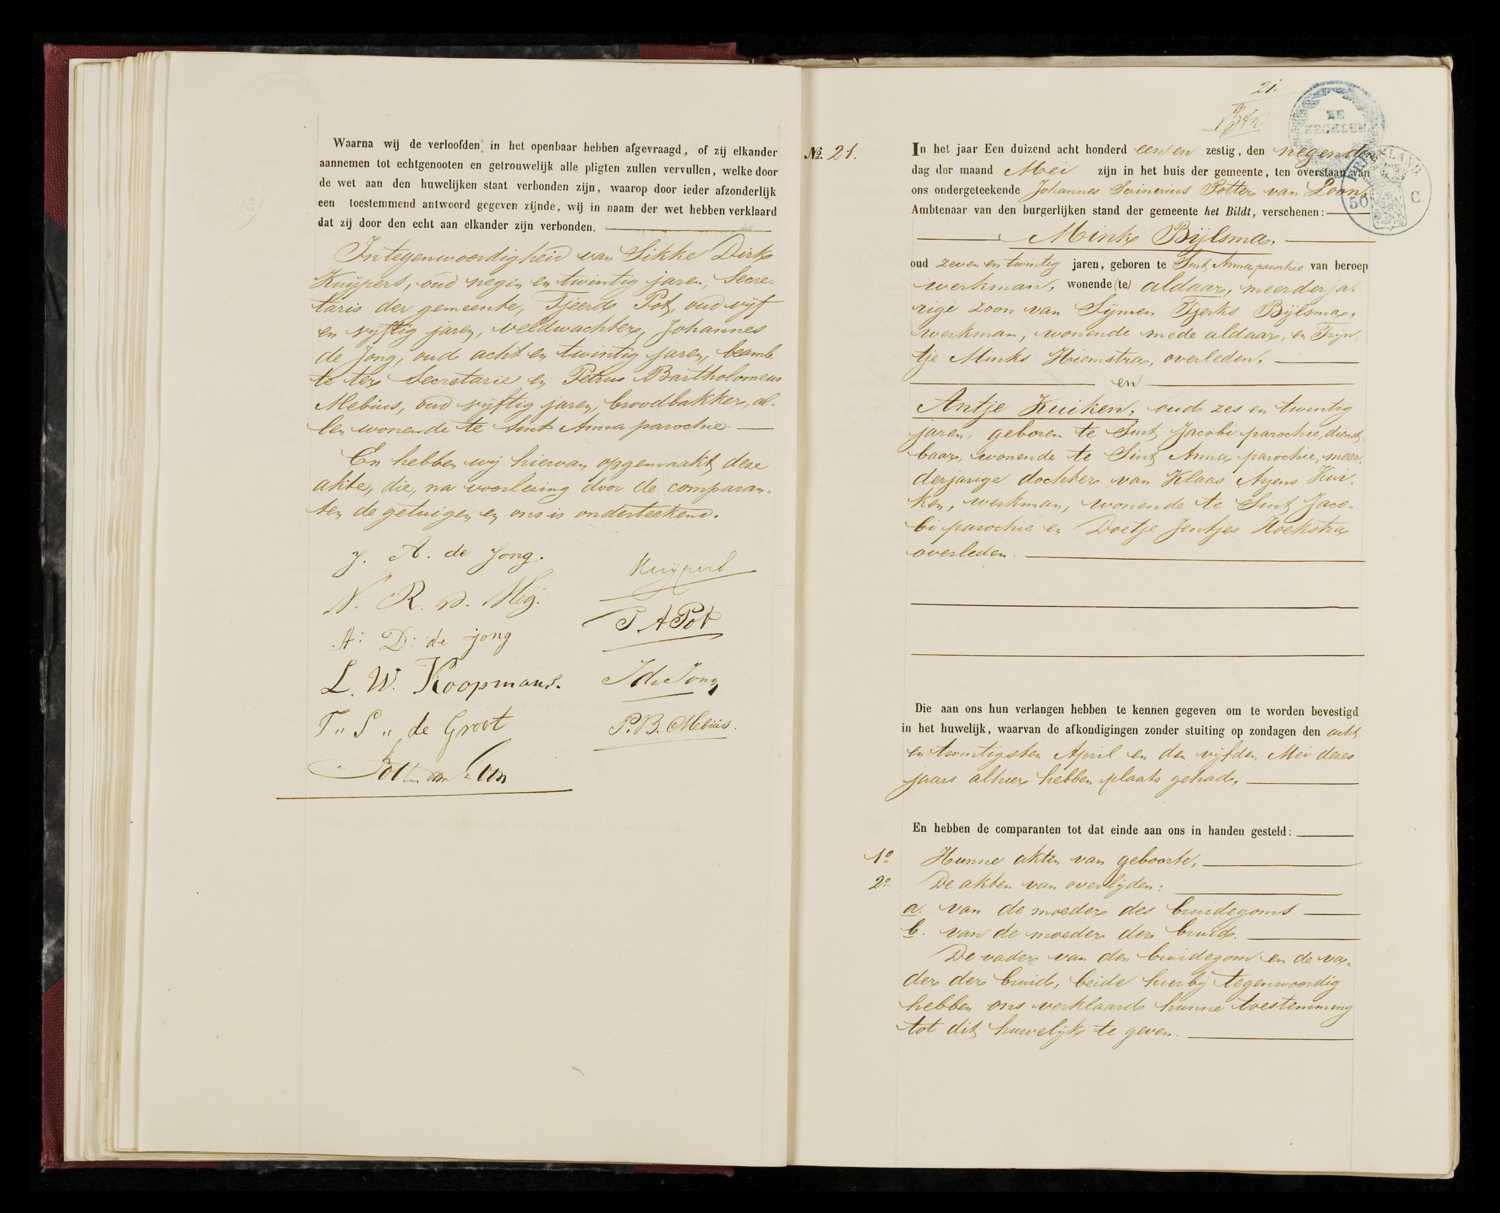 Waarna wij de verloofden in het openbaar hebben afgevraagd, of zij elkander
aannemen tot echtgenooten en getrouwelijk alle pligten zullen vervullen, welke door
de wet aan den huwelijken staat verbonden zijn, waarop door ieder afzonderlijk
een toestemmend antwoord gegeven zijnde, wij in naam der wet hebben verklaard
dat zij door den echt aan elkander zijn verbonden.
In tegenwoordigheid van Sikke Dirks
Kuijpers, oud negen en twintig jaren, Secre-
taris der gemeente, Tjeerd Pot, oud vijf
en vijftig jaren, veldwachter, Johannes
de Jong, oud acht en twintig jaren, beamb
te ter Secretarie en Petrus Bartholomeus
Mebius, oud vijftig jaren, broodbakker, al-
len wonende te Sint Anna parochie
En hebben wij hiervan opgemaakt deze
akte, die, na voorlezing door de comparan-
ten de getuigen en ons is onderteekend.
J. A. de Jong.
Kuijpers
N. R. d. Meij.
T A Pot
A. D. de jong
J de Jong
L. W. Koopmans.
P. B. Mebius.
T. S. de Groot
Potter van Loon
21.
No. 21.
In het jaar Een duizend acht honderd een en zestig, den negende
dag der maand Mei zijn in het huis der gemeente, ten overstaan van
ons ondergeteekende Johannes Scrinerius Potter van Loon,
Ambtenaar van den burgerlijken stand der gemeente het Bildt, verschenen:
Mink Bijlsma.
oud zeven en twintig jaren, geboren te Sint Anna parochie van beroep
werkman, wonende (te) aldaar, meerderja-
rige zoon van Sijmen Tjerks Bijlsma,
werkman, wonende mede aldaar, en Trijn-
tje Minks Hiemstra, overleden.
en
Antje Kuiken, oud zes en twintig
jaren, geboren te Sint Jacobi parochie, dienst-
baar, wonende te Sint Anna parochie, meer-
derjarige dochter van Klaas Arjens Kui-
ken, werkman, wonende te Sint Jaco-
bi parochie en Doetje Jentjes Hoekstra
overleden.
Die aan ons hun verlangen hebben te kennen gegeven om te worden bevestigd
in het huwelijk, waarvan de afkondigingen zonder stuiting op zondagen den acht
en twintigsten April en den vijfden Mei dezes
jaars alhier hebben plaats gehad,
En hebben de comparanten tot dat einde aan ons in handen gesteld:
1o Hunne akten van geboorte,
2o De akten van overlijden:
a. van de moeder des bruidegoms
b. van de moeder der bruid.
De vader van den bruidegom en de va-
der der bruid, beide hierbij tegenwoordig
hebben ons verklaard hunne toestemming
tot dit huwelijk te geven.
FRIESLAND
50 C.